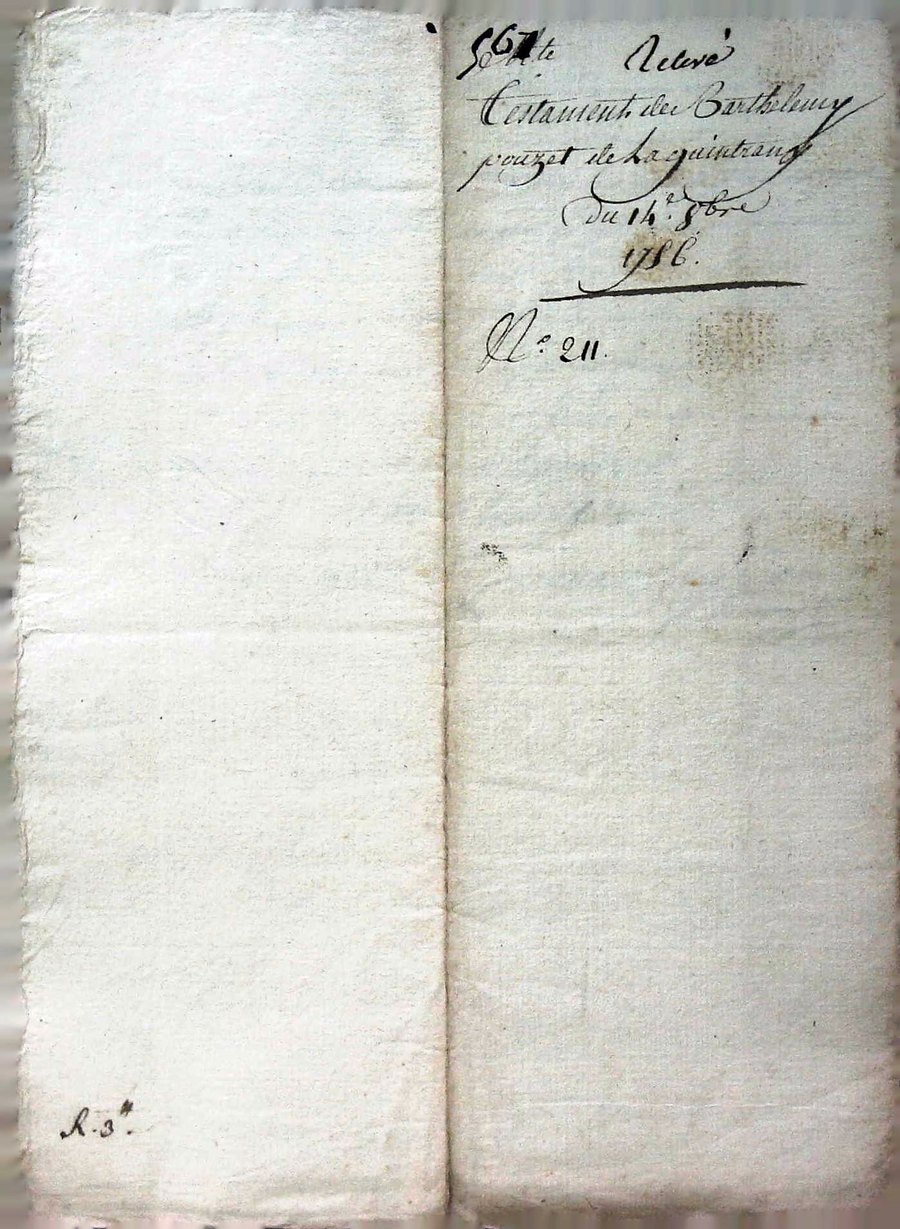 567 Relevé
Testament de Barthelemy
pouzet de Laquintrang
du 14e. 8bre
1786.
No. 211.
R. 3"